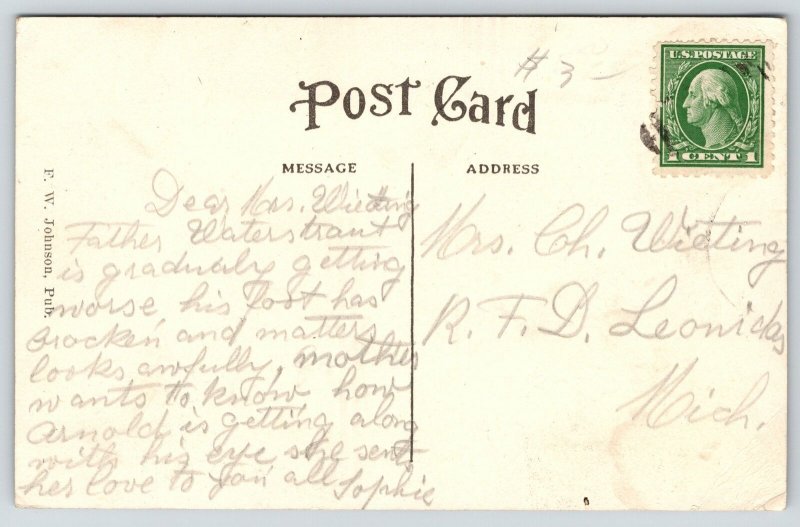 # 3 -
U.S. POSTAGE
1 CENT 1
Post Card
MESSAGE
ADDRESS
F. W. Johnson, Pub.
Dear Mrs. Wieting
Father Waterstraut
is gradualy getting
worse, his foot has
brocken and matters
looks awfully, mother
wants to know how
Arnold is getting along
with his eye she sent
her love to you all Sophie
Mrs. Ch. Wieting
R. F. D. Leonidas
Mich.